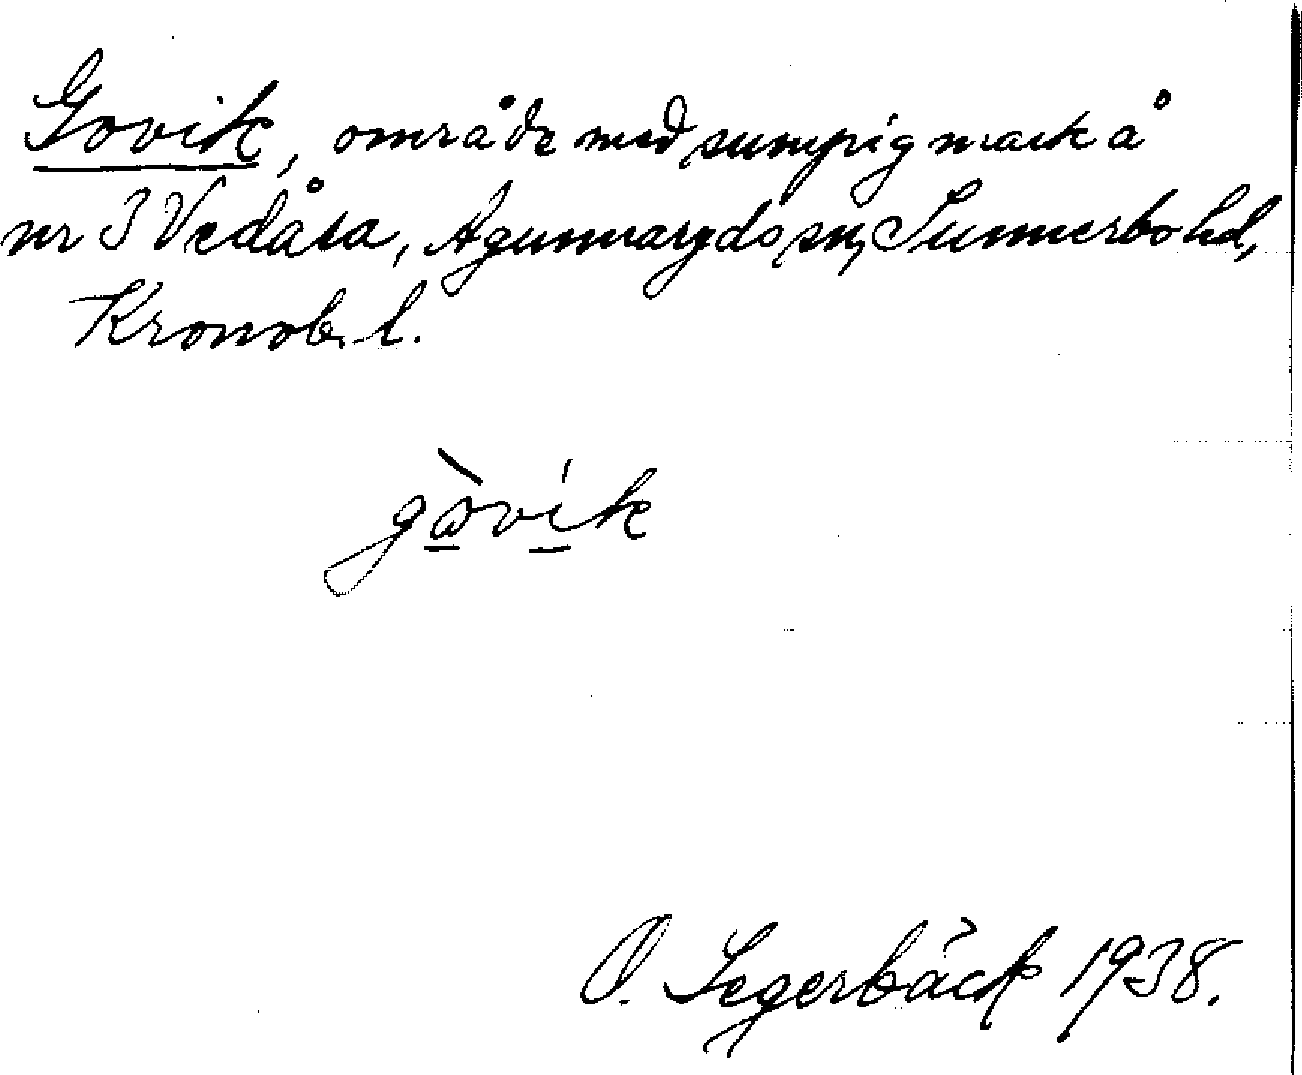 Govik, område med sumpig mark å
nr 3 Vedåsa, Agunnaryds sn, Sunnerbo hd,
Kronob. l.
gòvik
O. Segerbäck 1938.